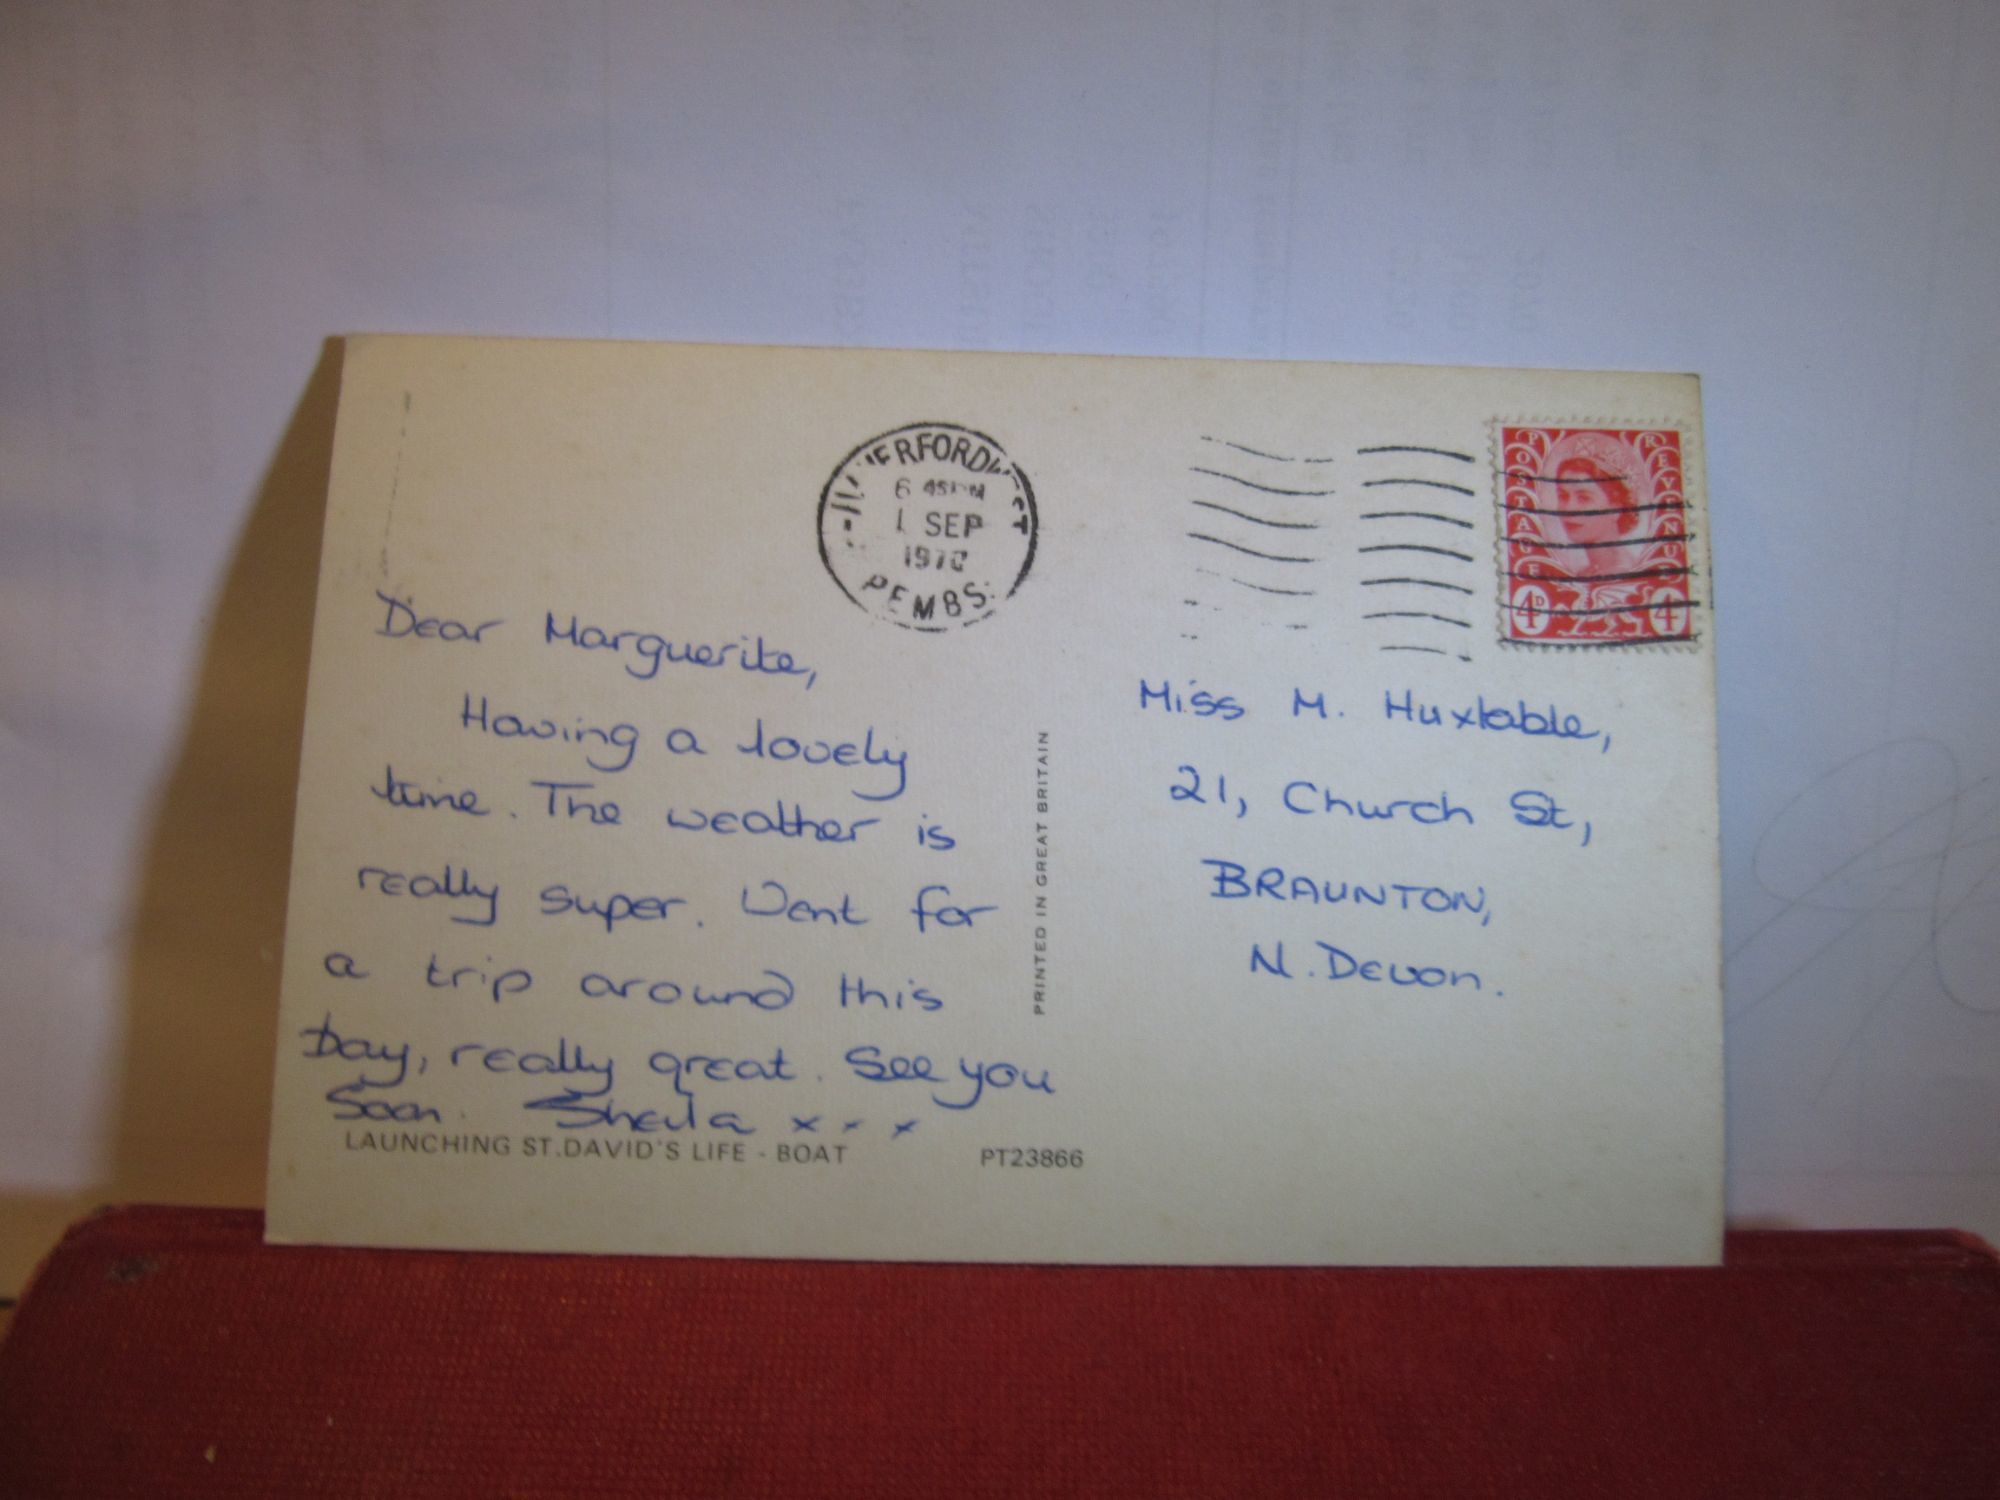 6 45PM
1 SEP
1970
PEMBS.
POSTAGE
REVENUE
4D
4
Dear Marguerite,
Having a lovely
time. The weather is
really super. Went for
a trip around this
Day, really great. See you
Soon. Sheila x x x
LAUNCHING ST.DAVID'S LIFE - BOAT
PT23866
PRINTED IN GREAT BRITAIN
Miss M. Huxtable,
21, Church St,
BRAUNTON,
N. Devon.